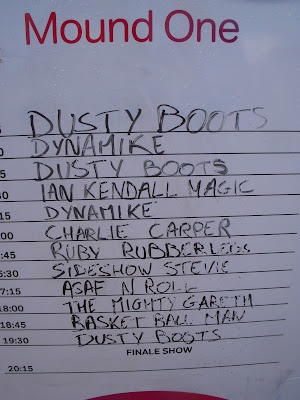 Mound One
DUSTY BOOTS
DYNAMIKE
DUSTY BOOTS
IAN KENDALL MAGIC
15 DYNAMIKE
:00 CHARLIE CARPER
:45 RUBY RUBBERLEGS
6:30 SIDESHOW STEVIE
17:15 ASAF N ROLL
18:00 THE MIGHTY GARETH
18:45 BASKET BALL MAN
19:30 DUSTY BOOTS
FINALE SHOW
20:15